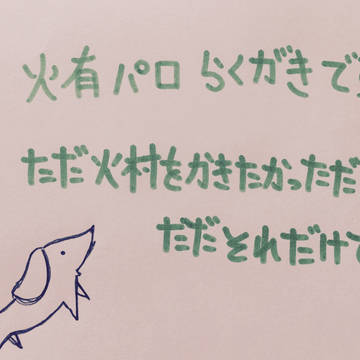 火有パロ らくがきで
ただ火村をかきたかっただ
ただそれだけで